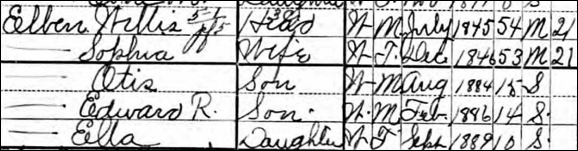 Elben Willis Head W M July 1845 54 M 21
— Sophia Wife W F Dec 1846 53 M 21
— Otis Son W M Aug 1884 15 S
— Edward R. Son W M Feb 1886 14 S
— Ella Daughter W F Sept 1889 10 S